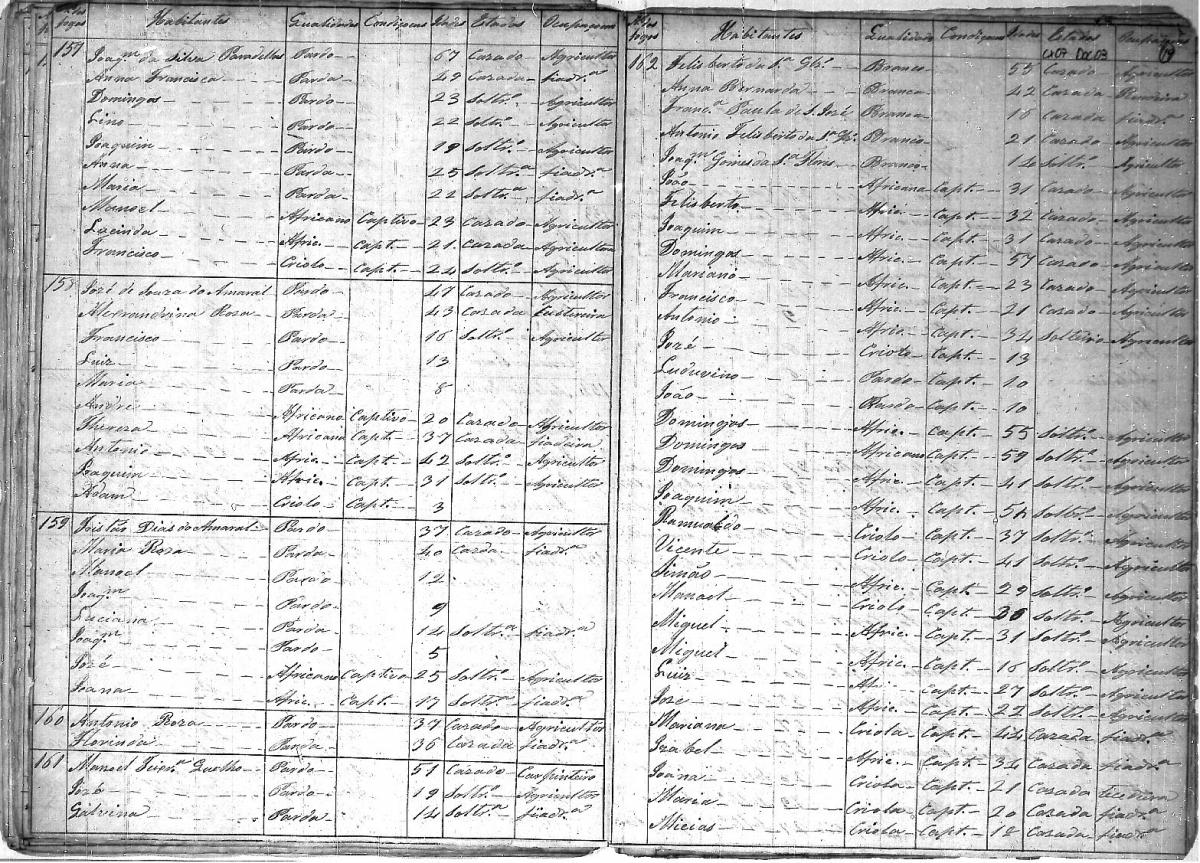 fogos Habitantes Qualidades Condiçoens Idades Estados Ocupaçoens
157 Joaqm da Silva Pardo 67 Cazado Agricultor
Anna Francisca Parda 49 Cazada fiadra
Domingos Pardo 23 Soltro Agricultor
Lino Pardo 22 Soltro Agricultor
Joaquim Pardo 19 Soltro Agricultor
Anna Parda 25 Soltra fiadra
Maria Parda 22 Soltra fiadra
Manoel Africano Captivo 23 Cazado Agricultor
Lucinda Afric. Capt. 21 Cazada Agricultora
Francisco Criolo Capt. 24 Soltro Agricultor
158 José de Souza do Amaral Pardo 47 Cazado Agricultor
Alexandrina Rosa Parda 43 Cazada
Francisco Pardo 16 Soltro Agricultor
Luiz Pardo 13
Maria Parda 8
André Africano Captivo 20 Cazado Agricultor
Thereza Africana Capt. 37 Cazada fiadeira
Antonio Afric. Capt. 42 Soltro Agricultor
Joaquim Afric. Capt. 31 Soltro Agricultor
Adam Criolo Capt. 3
159 Tristão Dias do Amaral Pardo 37 Cazado Agricultor
Maria Roza Parda 40 Cazda fiadra
Manoel Pardo 12
Joaqm Pardo 9
Luciana Parda 14 Soltra fiadra
Joaqm Pardo 5
José Africano Captivo 25 Soltro Agricultor
Joana Afric. Capt. 17 Soltra fiadra
160 Antonio Roza Pardo 37 Cazado Agricultor
Florinda Parda 36 Cazada fiadra
161 Manoel Coelho Pardo 51 Cazado Carpinteiro
José Pardo 19 Soltro Agricultor
Galvina Parda 14 Soltra fiadra
fogos Habitantes Qualidade Condiçoens Idades Estados
CX07 DOC03 09
162 Felisberto da Sa Branco 55 Cazado Agricultor
Anna Bernarda Branca 42 Cazada
Franca Paula de S. José Branca 18 Cazada fiadra
Antonio Felisberto da Sa Branco 21 Cazado Agricultor
Joaqm Gomes da Sa Flores Branco 14 Soltro Agricultor
João Africano Capt. 31 Cazado Agricultor
Felisberto Afric. Capt. 32 Cazado Agricultor
Joaquim Afric. Capt. 31 Cazado Agricultor
Domingos Afric. Capt. 57 Cazado Agricultor
Mariano Afric. Capt. 23 Cazado Agricultor
Francisco Afric. Capt. 21 Cazado Agricultor
Antonio Afric. Capt. 34 Solteiro Agricultor
José Criolo Capt. 13
Luduvino Pardo Capt. 10
João Pardo Capt. 10
Domingos Afric. Capt. 55 Soltro Agricultor
Domingos Africano Capt. 59 Soltro Agricultor
Domingos Afric. Capt. 41 Soltro Agricultor
Joaquim Afric. Capt. Soltro Agricultor
Ramualdo Criolo Capt. 37 Soltro Agricultor
Vicente Criolo Capt. 41 Soltro Agricultor
Simão Afric. Capt. 29 Soltro Agricultor
Manoel Criolo Capt. Soltro Agricultor
Miguel Afric. Capt. 31 Soltro Agricultor
Miguel Afric. Capt. 16 Soltro Agricultor
Luiz Af. Capt. 27 Soltro Agricultor
José Afric. Capt. 22 Soltro Agricultor
Mariana Criola Capt. 44 Cazada fiadra
Izabel Afric. Capt. 34 Cazada fiadra
Joana Criola Capt. 21 Cazada
Maria Criola Capt. 20 Cazada fiadra
Micias Criola Capt. 18 Cazada fiadra